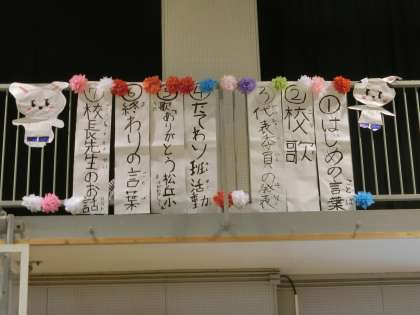 ①はじめの言葉
ことば
②校歌
③代表委員の発表
④たてわり班活動
⑤歌ありがとう松丘小
⑥終わりの言葉
ことば
⑦校長先生のお話